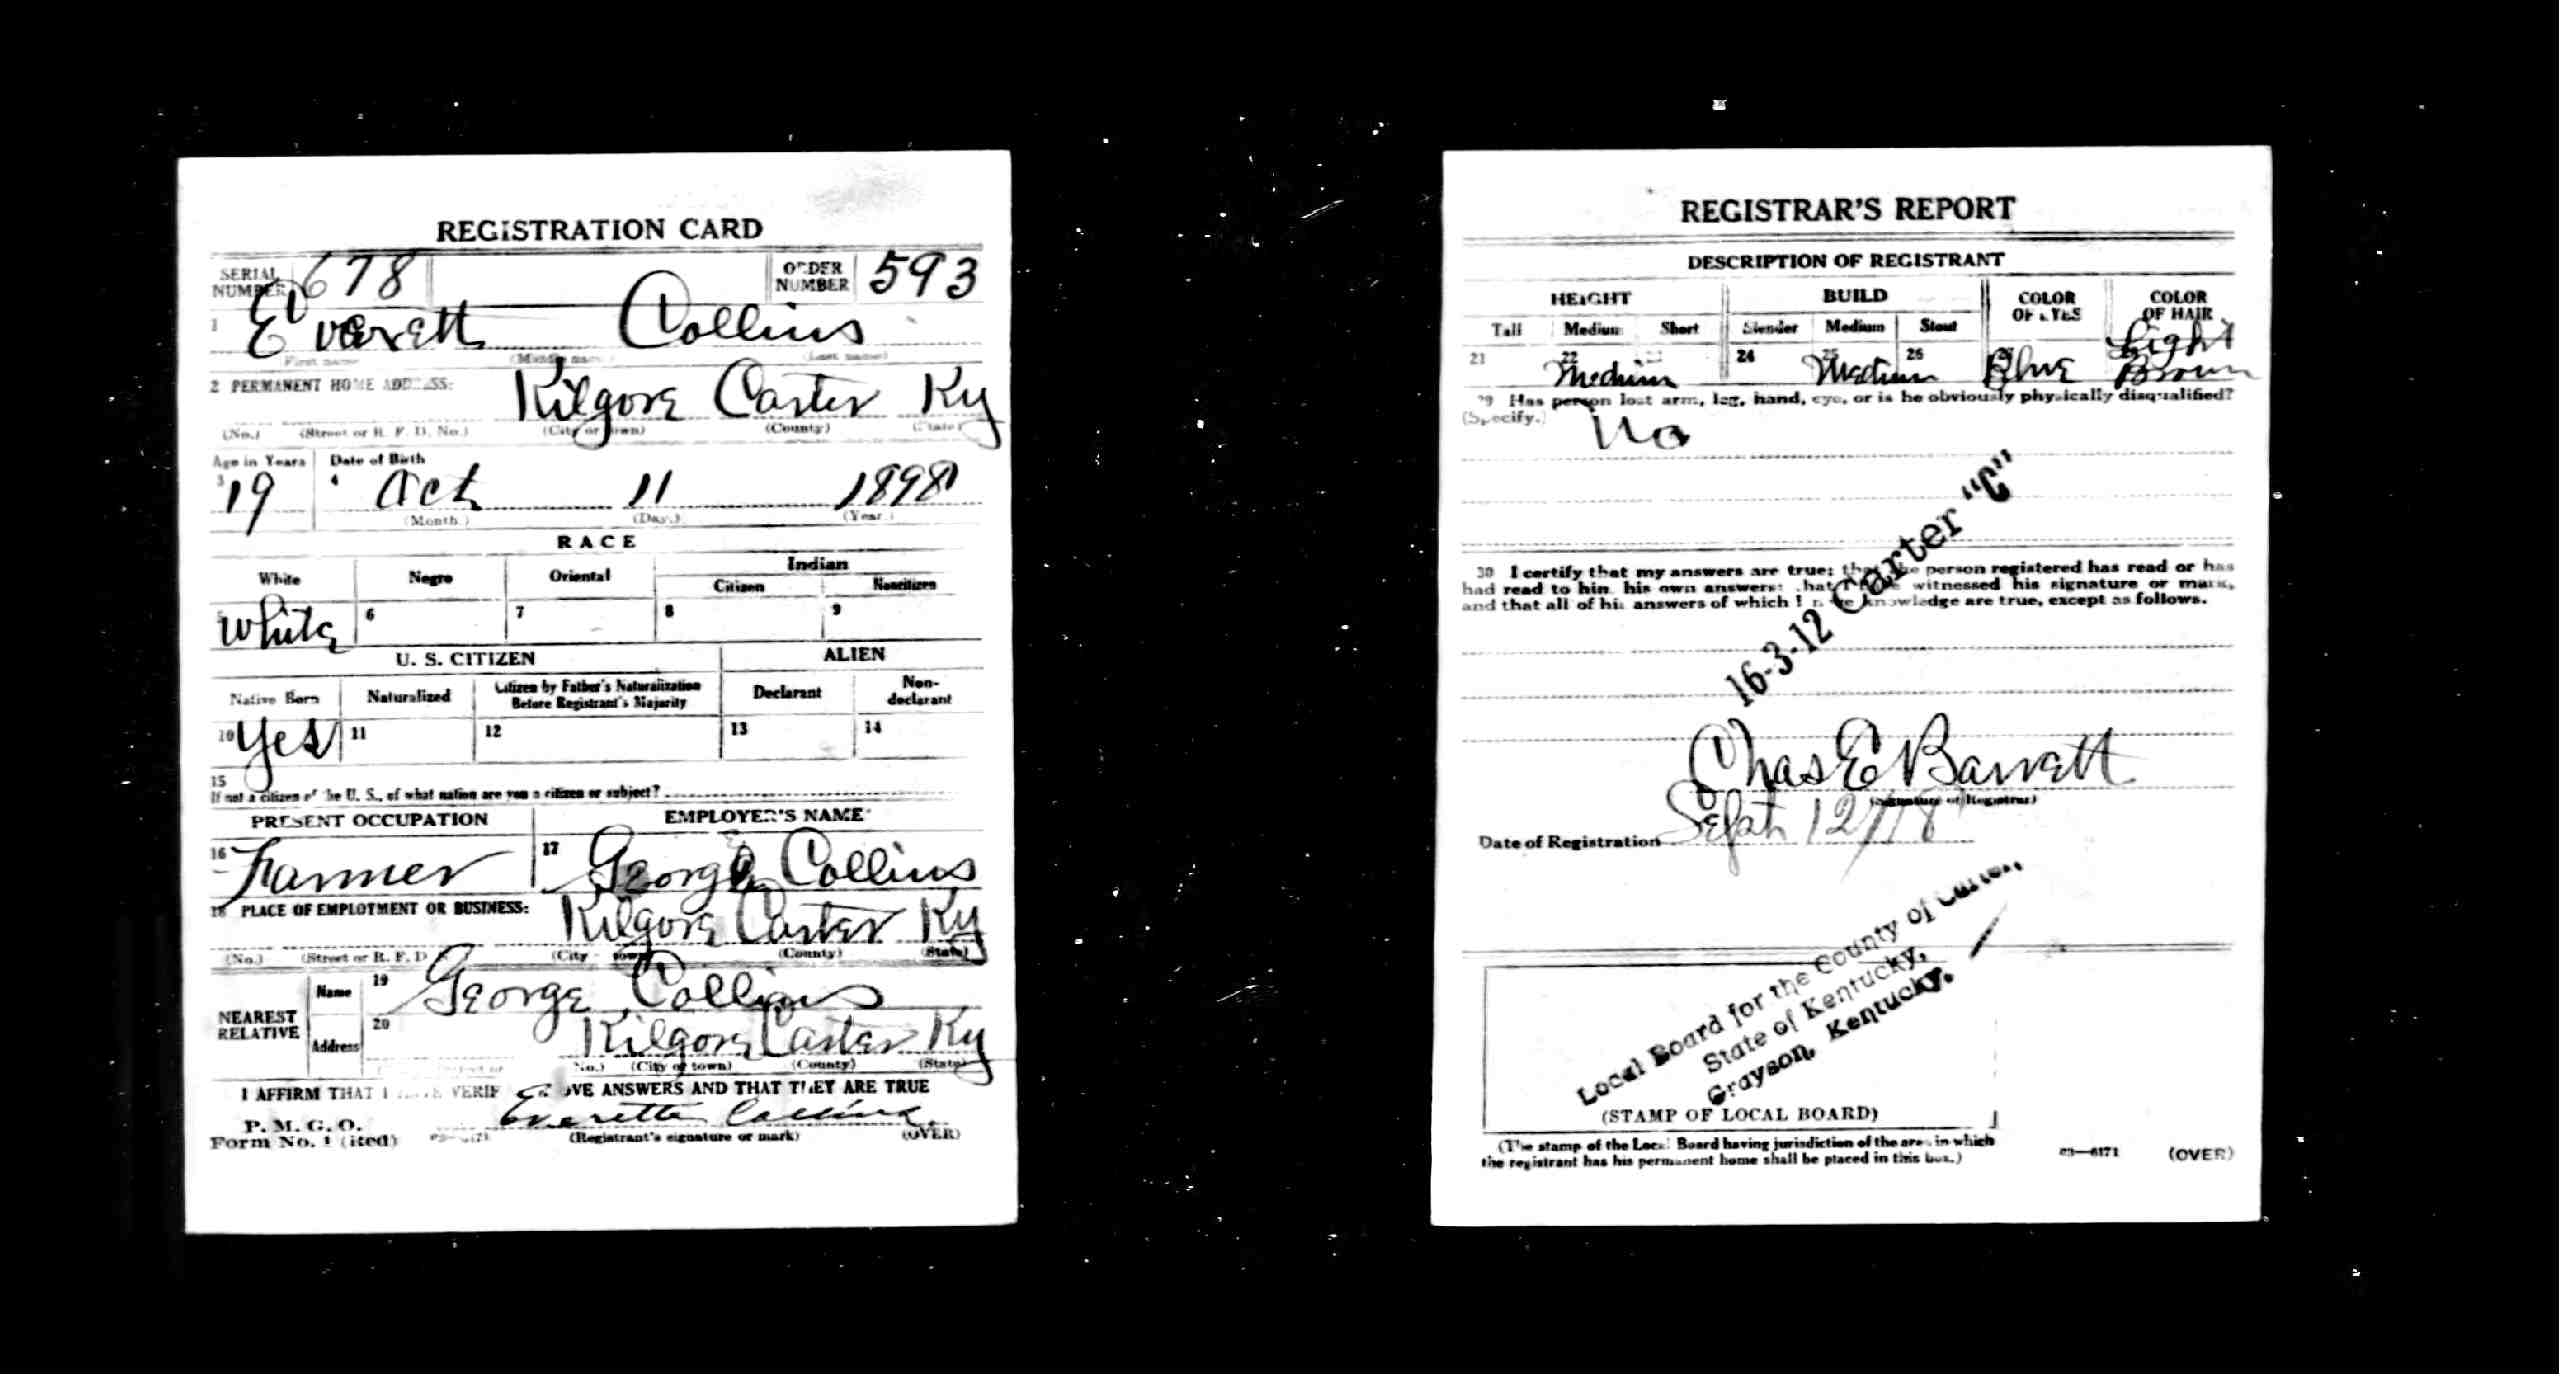 REGISTRATION CARD
SERIAL NUMBER 678 ORDER NUMBER 593
Ev
1 Everett Collins
First name (Middle name) (Last name)
2 PERMANENT HOME ADDRESS:
Kilgore Carter Ky
(No.) (Street or R. F. D. No.) (City or town) (County) (State)
Age in Years Date of Birth
3 19 4 Oct 11 1898
(Month.) (Day.) (Year.)
RACE
White Negro Oriental Indian
Citizen Noncitizen
5 White 6 7 8 9
U. S. CITIZEN ALIEN
Native Born Naturalized Citizen by Father's Naturalization Before Registrant's Majority Declarant Non-declarant
10 Yes 11 12 13 14
15
If not a citizen of the U. S., of what nation are you a citizen or subject?
PRESENT OCCUPATION EMPLOYER'S NAME
16 Farmer 17 George Collins
18 PLACE OF EMPLOYMENT OR BUSINESS:
Kilgore Carter Ky
(No.) (Street or R. F. D (City town) (County) (State)
NEAREST RELATIVE Name 19 George Collins
Address 20 Kilgore Carter Ky
No.) (City or town) (County) (State)
I AFFIRM THAT I HAVE VERIF OVE ANSWERS AND THAT THEY ARE TRUE
P. M. G. O.
Form No. 1 (ited) Everette Collins
(Registrant's signature or mark) (OVER)
REGISTRAR'S REPORT
DESCRIPTION OF REGISTRANT
HEIGHT BUILD COLOR OF EYES COLOR OF HAIR
Tall Medium Short Slender Medium Stout
21 22 Medium 24 25 Medium 26 27 Blue Light Brown
29 Has person lost arm, leg, hand, eye, or is he obviously physically disqualified?
(Specify.) No
30 I certify that my answers are true; that the person registered has read or has
had read to him his own answers; that I have witnessed his signature or mark,
and that all of his answers of which I have knowledge are true, except as follows.
16-3-12 Carter "C"
Chas E Barrett
(Signature of Registrar)
Date of Registration Sept 12/18
Local Board for the County of Carter,
State of Kentucky,
Grayson, Kentucky.
(STAMP OF LOCAL BOARD)
(The stamp of the Local Board having jurisdiction of the area in which
the registrant has his permanent home shall be placed in this box.)
03—6171 (OVER)